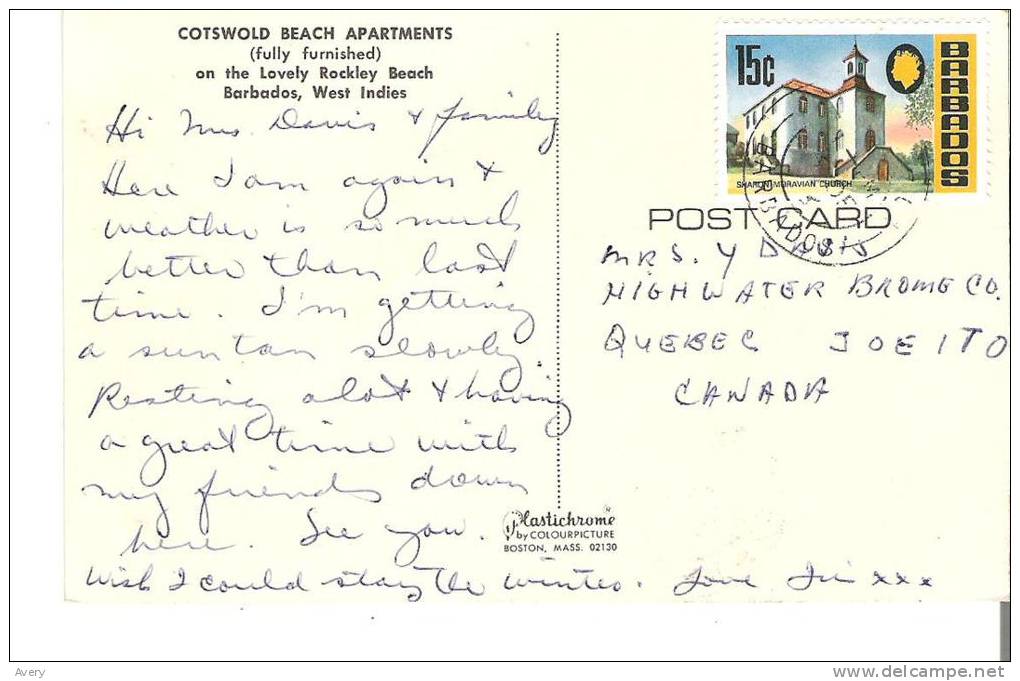 COTSWOLD BEACH APARTMENTS
(fully furnished)
on the Lovely Rockley Beach
Barbados, West Indies
Hi Mrs Davis & family
Here I am again &
weather is so much
better than last
time. I'm getting
a sun tan slowly.
Resting alot & having
a great time with
my friends down
here. See you.
wish I could stay the winter. Love xxx
Plastichrome
by COLOURPICTURE
BOSTON, MASS. 02130
15c
BARBADOS
SHARON MORAVIAN CHURCH
BARBADOS
POST CARD
MRS. Y DAVIS
HIGHWATER BROME CO.
QUEBEC JOE ITO
CANADA
Avery
www.delcampe.net